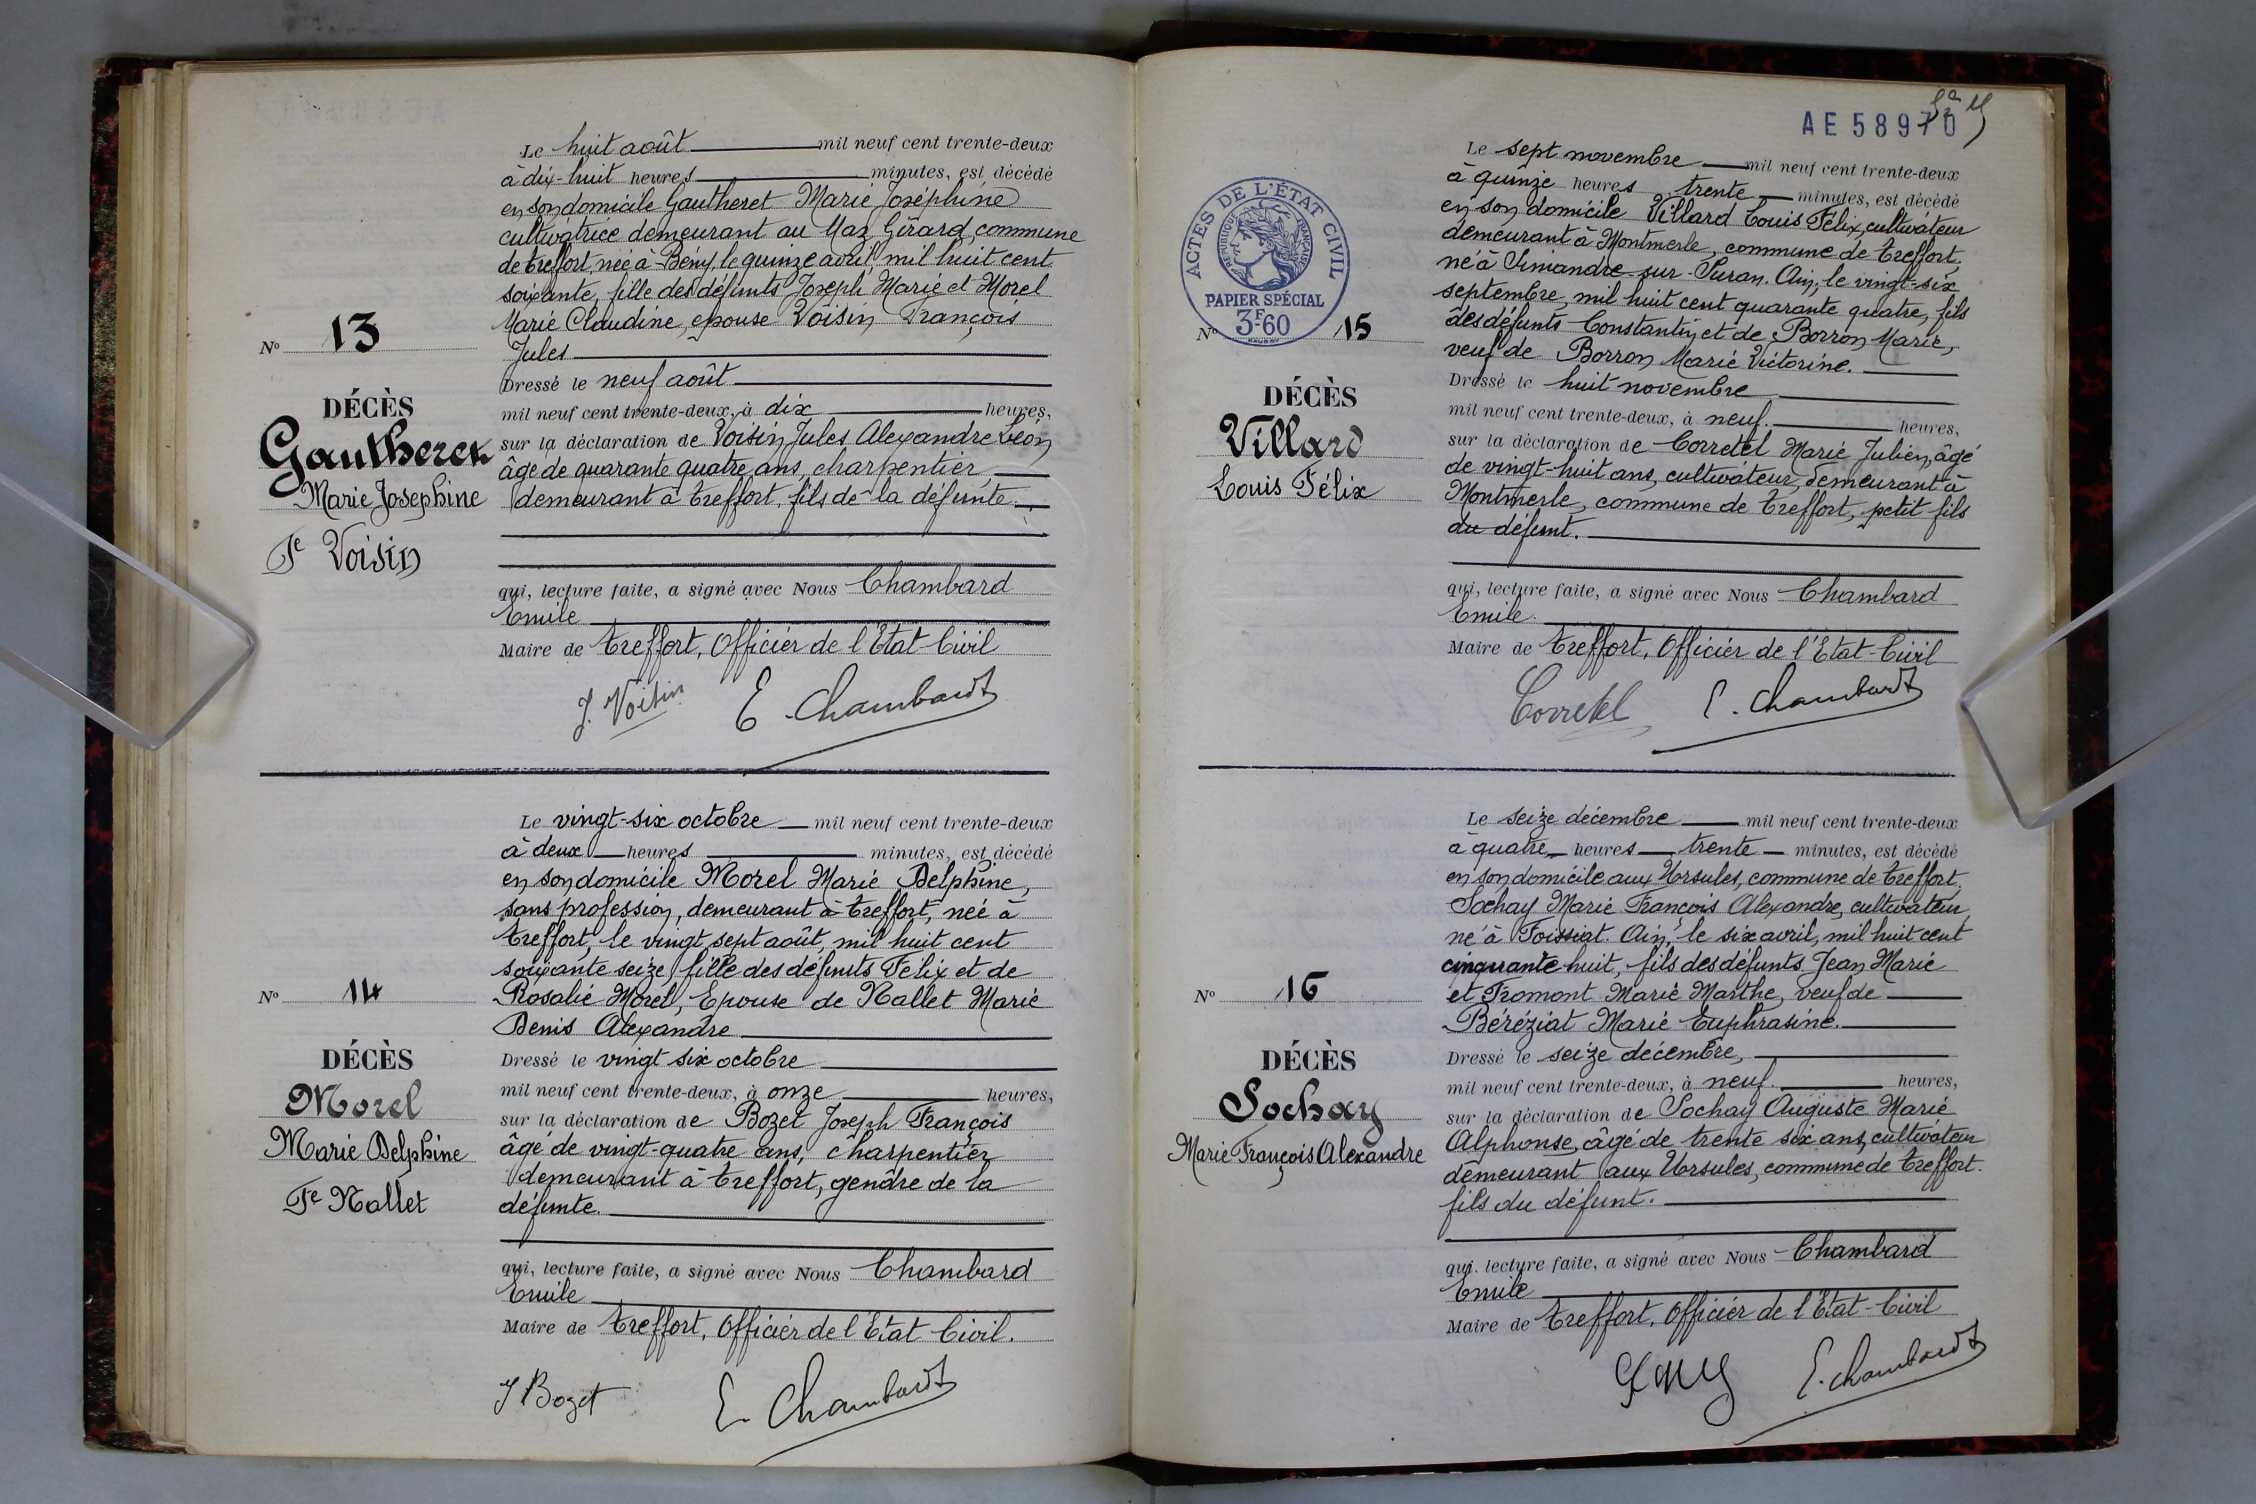 Le huit août mil neuf cent trente-deux
à dix-huit heures minutes, est décédé
en son domicile Gautheret Marie Joséphine
cultivatrice demeurant au Maz Girard, commune
de Treffort, née à Bény, le quinze avril, mil huit cent
soixante, fille des défunts Joseph Marie et Morel
Marie Claudine, épouse Voisin François
Jules
Dressé le neuf août
mil neuf cent trente-deux, à dix heures,
sur la déclaration de Voisin Jules Alexandre Léon
âgé de quarante quatre ans, charpentier
demeurant à Treffort, fils de la défunte.
qui, lecture faite, a signé avec Nous Chambard
Emile
Maire de Treffort, Officier de l'Etat-Civil
J. Voisin E. Chambard
N° 13
DÉCÈS
Gautheret
Marie Josephine
Fe Voisin
Le vingt-six octobre mil neuf cent trente-deux
à deux heures minutes, est décédé
en son domicile Morel Marie Delphine,
sans profession, demeurant à Treffort, née à
Treffort, le vingt sept août, mil huit cent
soixante seize, fille des défunts Félix et de
Rosalie Morel, Epouse de Nallet Marie
Denis Alexandre
Dressé le vingt six octobre
mil neuf cent trente-deux, à onze heures,
sur la déclaration de Bozet Joseph François
âgé de vingt-quatre ans, charpentier
demeurant à Treffort, gendre de la
défunte.
qui, lecture faite, a signé avec Nous Chambard
Emile
Maire de Treffort, Officier de l'Etat Civil.
J Bozet E. Chambard
N° 14
DÉCÈS
Morel
Marie Delphine
Fe Nallet
AE 58970
ACTES DE L'ÉTAT CIVIL
RÉPUBLIQUE FRANÇAISE
PAPIER SPÉCIAL
3F60
Le sept novembre mil neuf cent trente-deux
à quinze heures trente minutes, est décédé
en son domicile Villard Louis Félix, cultivateur
demeurant à Montmerle, commune de Treffort,
né à Simandre-sur-Suran. Ain, le vingt-six
septembre, mil huit cent quarante quatre, fils
des défunts Constantin et de Borron Marie,
veuf de Borron Marie Victorine.
Dressé le huit novembre
mil neuf cent trente-deux, à neuf. heures,
sur la déclaration de Corretel Marie Julien, âgé
de vingt-huit ans, cultivateur, demeurant à
Montmerle, commune de Treffort, petit fils
du défunt.
qui, lecture faite, a signé avec Nous Chambard
Emile
Maire de Treffort, Officier de l'Etat-Civil
Corretel E. Chambard
N° 15
DÉCÈS
Villard
Louis Félix
Le seize décembre mil neuf cent trente-deux
à quatre heures trente minutes, est décédé
en son domicile aux Ursules, commune de Treffort,
Sochay Marie François Alexandre, cultivateur
né à Foissiat. Ain, le six avril, mil huit cent
cinquante huit, fils des défunts Jean Marie
et Fromont Marie Marthe, veuf de
Béréziat Marie Euphrasine.
Dressé le seize décembre,
mil neuf cent trente-deux, à neuf. heures,
sur la déclaration de Sochay Auguste Marie
Alphonse, âgé de trente six ans, cultivateur
demeurant aux Ursules, commune de Treffort.
fils du défunt.
qui, lecture faite, a signé avec Nous Chambard
Emile
Maire de Treffort, Officier de l'Etat-Civil
E. Chambard
N° 16
DÉCÈS
Sochay
Marie François Alexandre